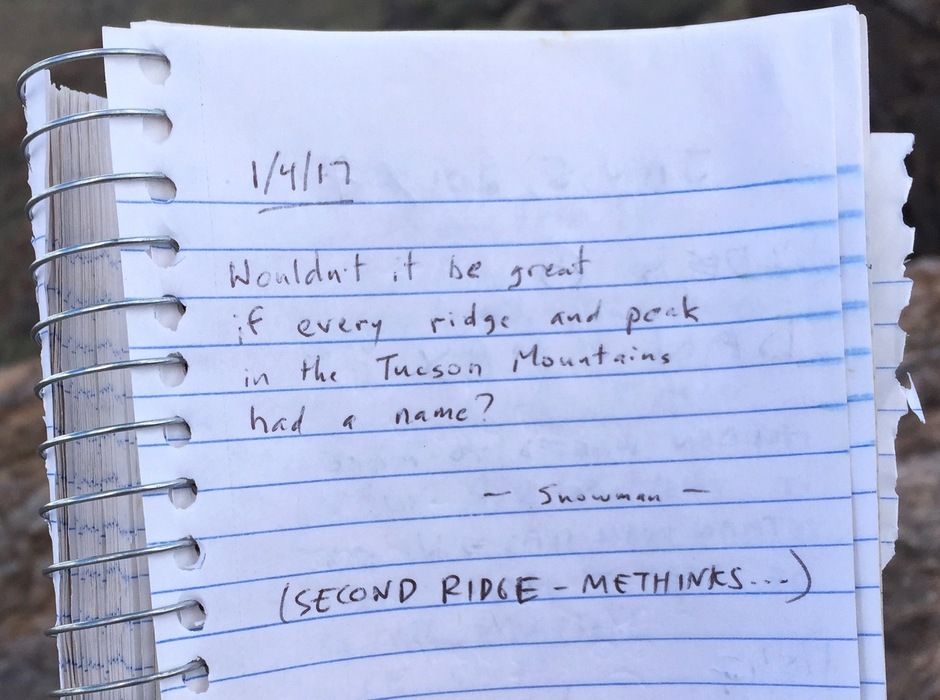 1/4/17
Wouldn't it be great
if every ridge and peak
in the Tucson Mountains
had a name?
— Snowman —
(SECOND RIDGE - METHINKS...)